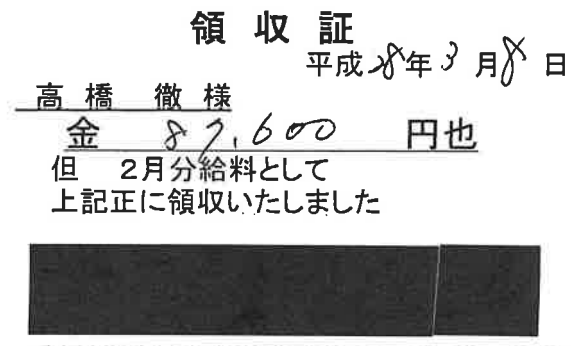 領収証
平成28年3月8日
高橋 徹 様
金 87,600 円也
但 2月分給料として
上記正に領収いたしました